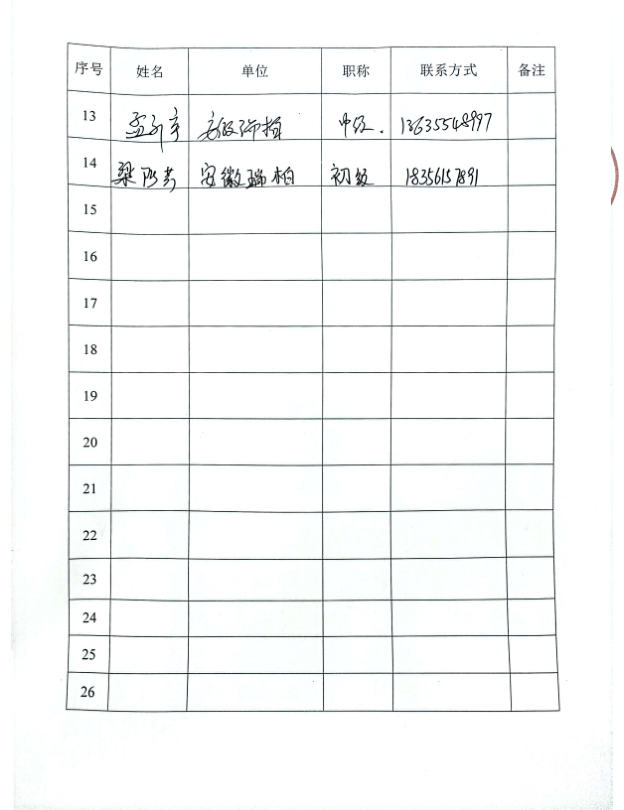 序号 姓名 单位 职称 联系方式 备注
13 孟 中级. 13635548997
14 梁 安徽瑞柏 初级 18356157891
15
16
17
18
19
20
21
22
23
24
25
26